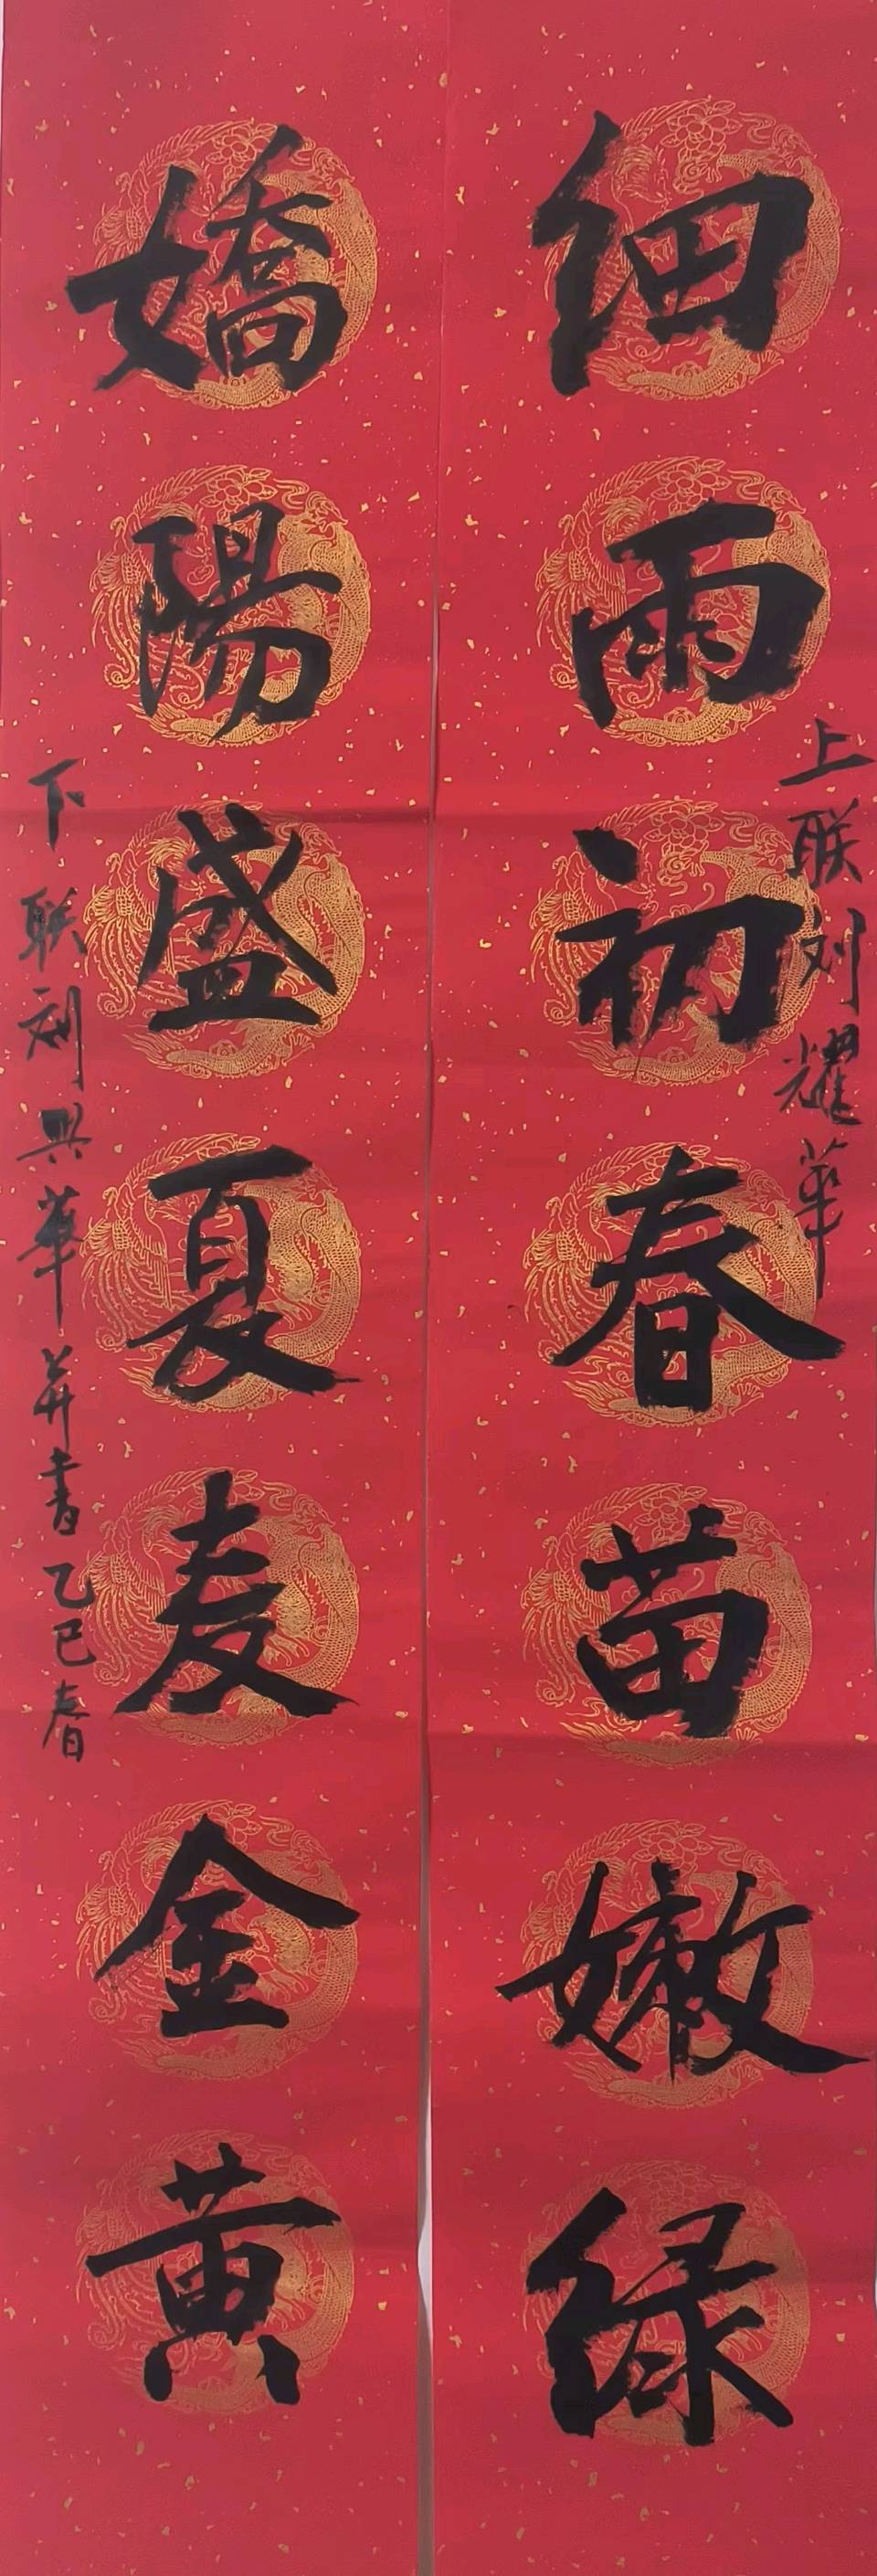 细雨初春苗嫩绿
上联刘耀華
嬌陽盛夏麦金黄
下联刘興華并书乙巳春